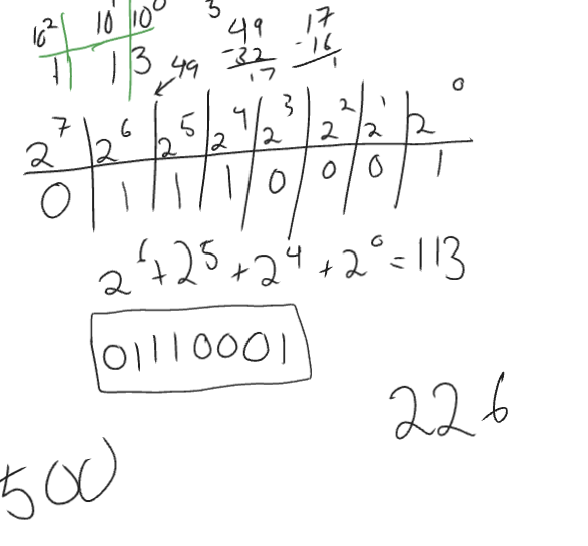 10² 10¹ 10⁰
1 1 3
3
49
-32
17
17
-16
1
49
2⁷ 2⁶ 2⁵ 2⁴ 2³ 2² 2¹ 2⁰
0 1 1 1 0 0 0 1
2⁶+2⁵+2⁴+2⁰=113
01110001
226
500